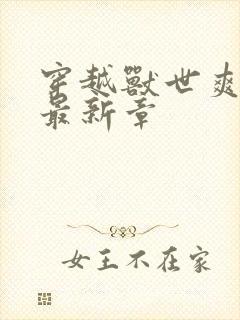 穿越兽世爽
最新章
女王不在家